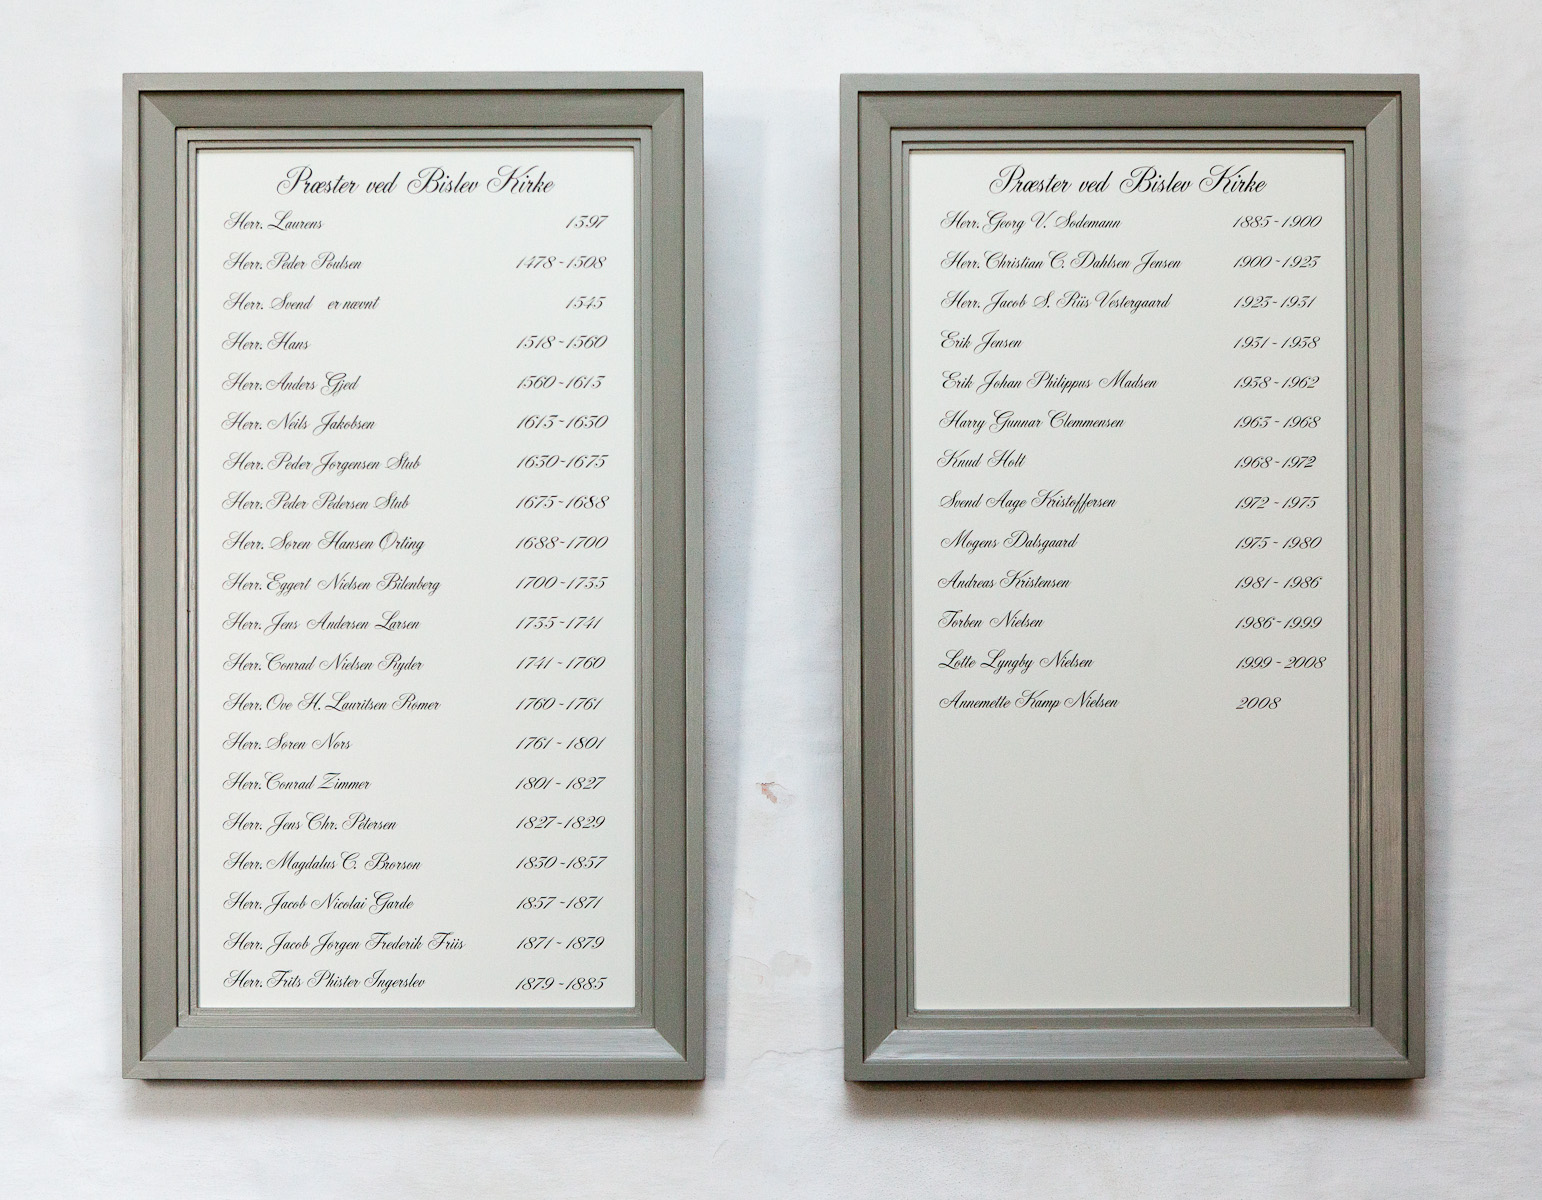 Præster ved Bislev Kirke
Herr. Laurens 1397
Herr. Peder Poulsen 1478-1508
Herr. Svend er nævnt 1543
Herr. Hans 1518-1560
Herr. Anders Gjed 1560-1613
Herr. Neils Jakobsen 1613-1630
Herr. Peder Jorgensen Stub 1630-1675
Herr. Peder Pedersen Stub 1675-1688
Herr. Soren Hansen Orting 1688-1700
Herr. Eggert Nielsen Bilenberg 1700-1735
Herr. Jens Andersen Larsen 1735-1741
Herr. Conrad Nielsen Ryder 1741-1760
Herr. Ove H. Lauritsen Romer 1760-1761
Herr. Soren Nors 1761-1801
Herr. Conrad Zimmer 1801-1827
Herr. Jens Chr. Petersen 1827-1829
Herr. Magdalus C. Brorson 1830-1857
Herr. Jacob Nicolai Garde 1857-1871
Herr. Jacob Jorgen Frederik Friis 1871-1879
Herr. Frits Phister Ingerslev 1879-1885
Præster ved Bislev Kirke
Herr. Georg V. Sodemann 1885-1900
Herr. Christian C. Dahlsen Jensen 1900-1923
Herr. Jacob S. Riis Vestergaard 1923-1931
Erik Jensen 1931-1938
Erik Johan Philippus Madsen 1938-1962
Harry Gunnar Clemmensen 1963-1968
Knud Holt 1968-1972
Svend Aage Kristoffersen 1972-1975
Mogens Dalsgaard 1975-1980
Andreas Kristensen 1981-1986
Torben Nielsen 1986-1999
Lotte Lyngby Nielsen 1999-2008
Annemette Kamp Nielsen 2008